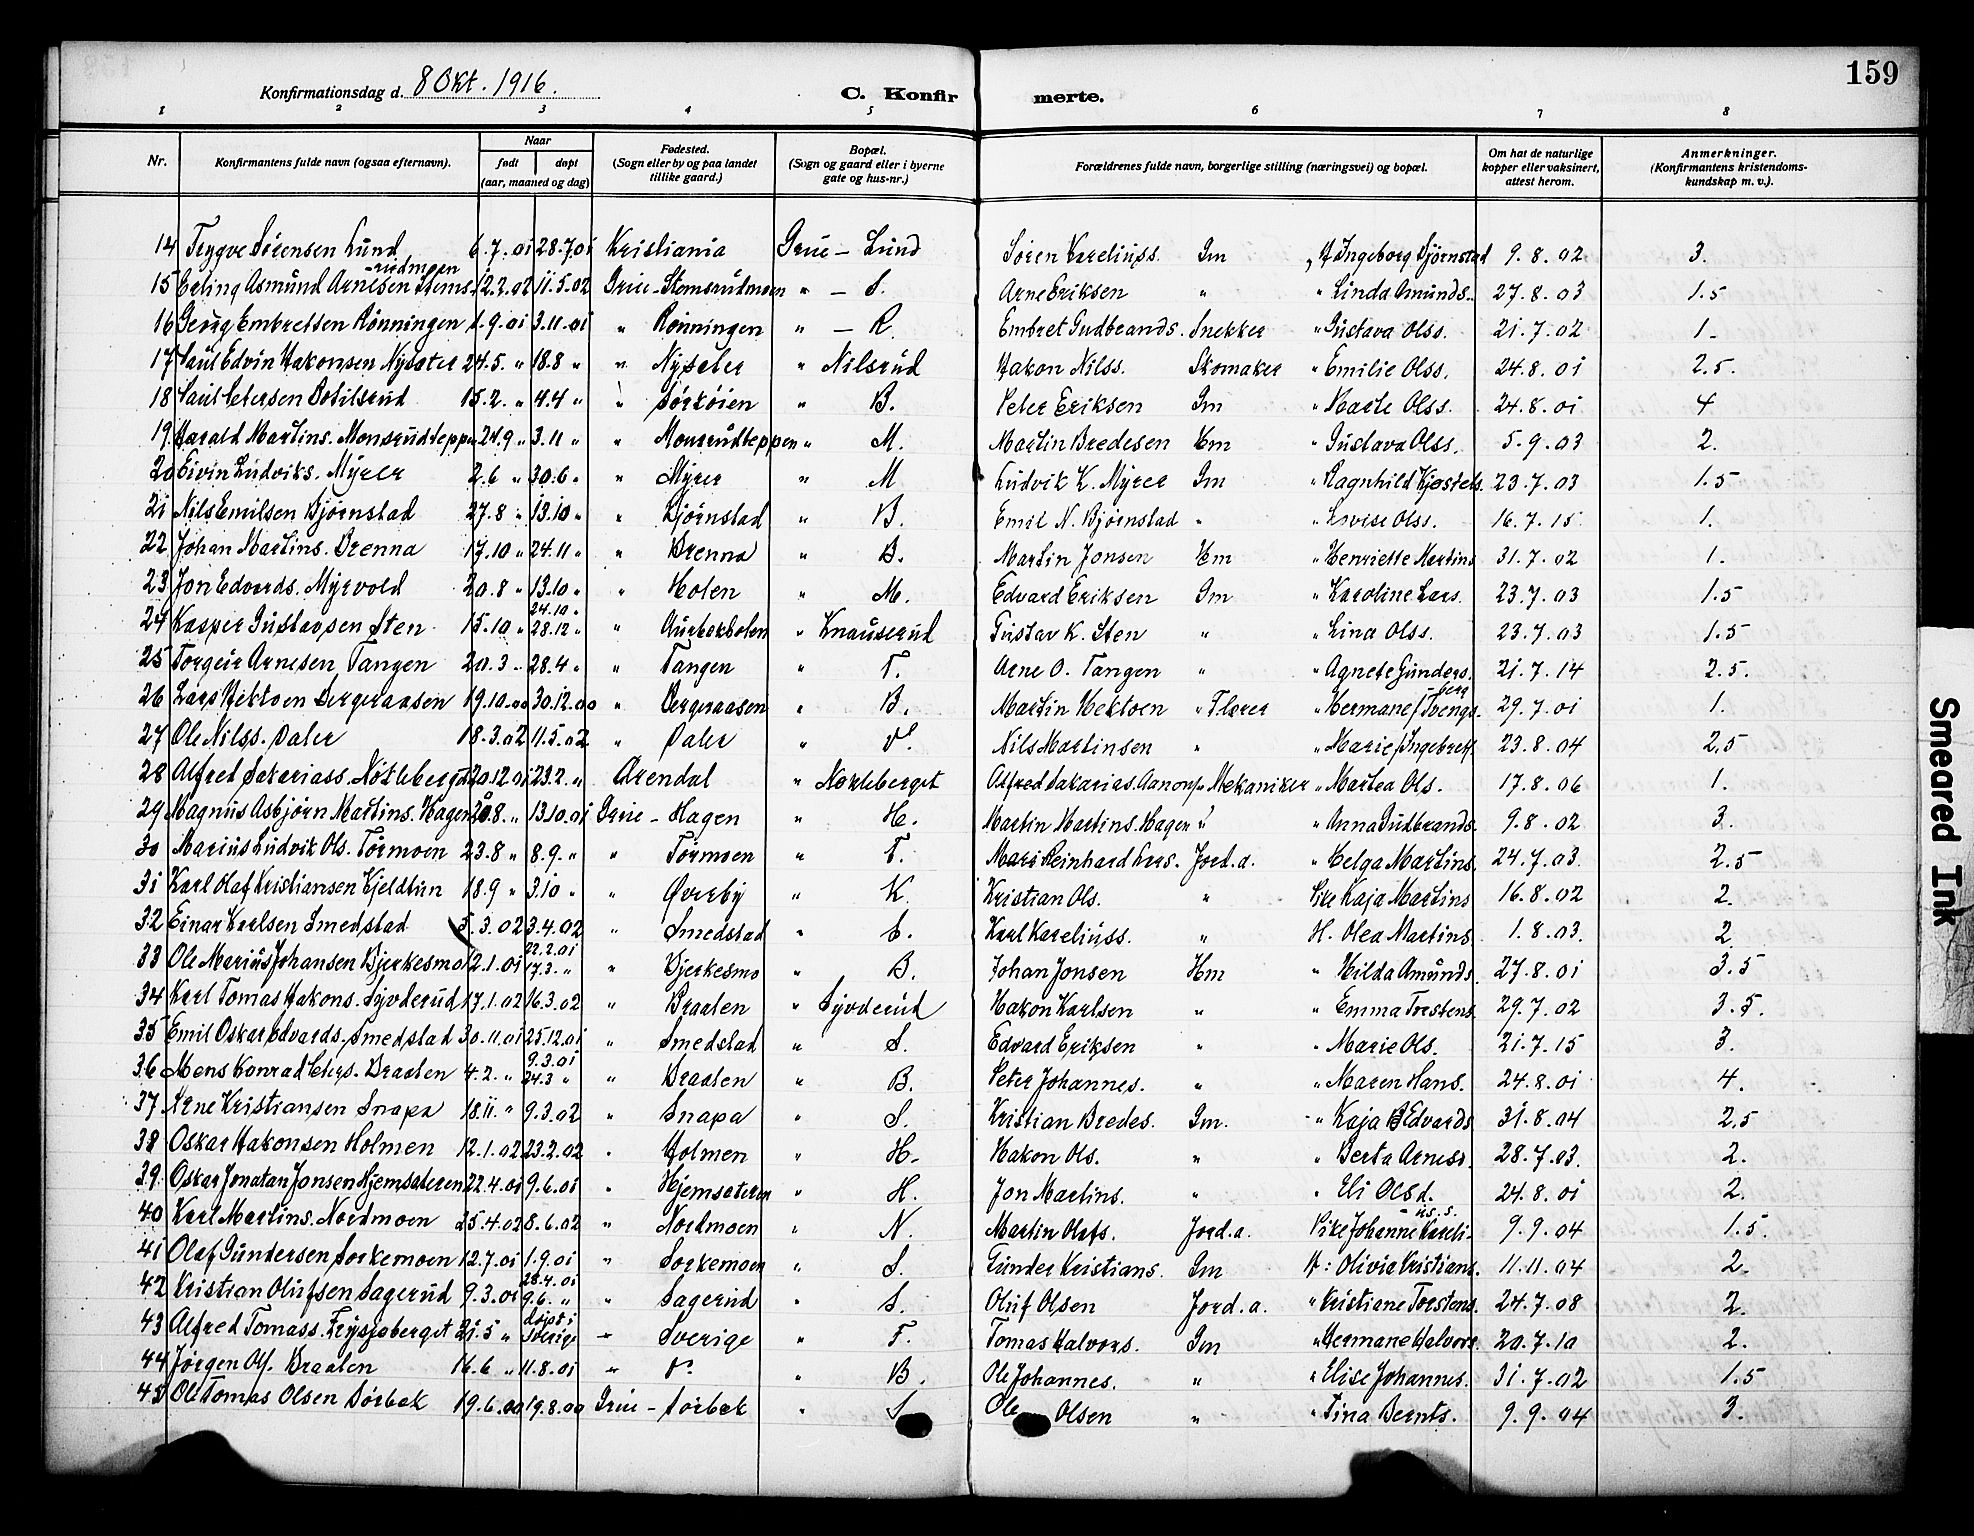 159
Konfirmationsdag d. 8 Okt. 1916.
C. Konfirmerte.
1 2 3 4 5 6 7 8
Nr. Konfirmantens fulde navn (ogsaa efternavn). Naar født døpt (aar, maaned og dag) Fødested. (Sogn eller by og paa landet tillike gaard.) Bopæl. (Sogn og gaard eller i byerne gate og hus-nr.) Forældrenes fulde navn, borgerlige stilling (næringsvei) og bopæl. Om hat de naturlige kopper eller vaksinert, attest herom. Anmerkninger. (Konfirmantens kristendomskundskap m. v.).
14 Trygve Sørensen Lund 6.7.01 28.7.01 Kristiania Grue - Lund Søren Kareliuss. Gm H Ingeborg Bjørnstad 9.8.02 3.
15 Erling Asmund Arnesen Stemsrudmoen 12.2.02 11.5.02 Grue - Stemsrudmoen " - S. Arne Eriksen " " Linda Amunds. 27.8.03 1.5
16 Georg Embretsen Rønningen 1.9.01 3.11.01 " Rønningen " - R. Embret Gudbrands. Snekker " Gustava Olss. 21.7.02 1-
17 Paul Edvin Hakonsen Nysæter 24.5. " 18.8 " " Nysæter " Nilsrud Hakon Nilss. Skomaker " Emilie Olss. 24.8.01 2.5.
18 Paul Petersen Botilsrud 15.2. " 4.4 " " Sørkoien " B. Peter Eriksen Gm " Marte Olss. 24.8.01 4
19 Harald Martins. Monsrudteppen 24.9 " 3.11 " " Monsrudteppen " M. Martin Bredesen Hm " Gustava Olss. 5.9.03 2.
20 Eivin Ludviks. Myrer 2.6 " 30.6 " " Myrer " M Ludvik K. Myrer Gm " Ragnhild Kjøstels. 23.7.03 1.5
21 Nils Emilsen Bjørnstad 27.8 " 13.10 " " Bjørnstad " B. Emil N. Bjørnstad " " Lovise Olss. 16.7.15 1.
22 Johan Martins. Brenna 17.10 " 24.11 " " Brenna " B. Martin Jonsen Hm " Henriette Martins 31.7.02 1.
23 Jon Edvards. Myrvold 20.8 " 13.10 " " Holen " M. Edvard Eriksen Gm " Karoline Lars. 23.7.03 1.5
24 Kasper Gustavsen Sten 15.10 " 24.10 " 28.12 " " Aurbekbolen " Knauserud Gustav K. Sten " " Lina Olss. 23.7.03 1.5
25 Torgeir Arnesen Tangen 20.3 " 28.4 " " Tangen " T. Arne O. Tangen " " Agnete Gunders. 21.7.14 2.5.
26 Lars Hektoen Bergeraasen 19.10.00 30.12.00 " Bergeraasen " B. Martin Hektoen " Hermane Tvengsberg 29.7.01 1.
27 Ole Nilss. Daler 18.3.02 11.5.02 " Daler " D. Nils Martinsen " " Marie Ingebretss. 23.8.04 2.5
28 Alfred Sakariass. Nøkleberget 20.12.01 23.2. " Arendal " Nøkleberget Alfred Sakarias. Aanons " Mekaniker " Martea Ols. 17.8.06 1.
29 Magnus Asbjørn Martins. Hagen 20.8. " 13.10.01 Grue - Hagen " H. Martin Martins. Hagen " " Anna Gudbrands. 9.8.02 3.
30 Marius Ludvik Ols. Tørmoen 23.8 " 8.9. " " Tørmoen " T. Reinhard Lars. Jord.a. " Helga Martins. 24.7.03 2.5
31 Karl Olaf Kristiansen Kjeldtun 18.9 " 3.10 " " Øverby " K. Kristian Ols. " Pike Kaja Martins 16.8.02 2.
32 Einar Karlsen Smedstad 5.3.02 3.4.02 " Smedstad " S. Karl Kareliuss. " H. Olea Martins. 1.8.03. 2
33 Ole Marius Johansen Bjerkesmo 12.1.01 22.2.01 17.3. " " Bjerkesmo " B. Johan Jonsen Hm " Hilda Amunds. 27.8.01 3.5
34 Karl Tomas Hakons. Syvderud 17.1.02 16.3.02 " Braaten " Syvderud Hakon Karlsen " " Emma Torstens. 29.7.02 3.5.
35 Emil Oskar Edvards. Smedstad 30.11.01 25.12.01 " Smedstad " S. Edvard Eriksen " " Marie Ols. 21.7.15 3.
36 Mons Konrad Peters. Braaten 4.2. " 9.3.01 24.3 " " Braaten " B. Peter Johannes. " " Maren Hans. 24.8.01 4.
37 Arne Kristiansen Snapa 18.11. " 9.3.02 " Snapa " S. Kristian Bredes. Gm. " Kaja Edvards 31.8.04 2.5
38 Oskar Hakonsen Holmen 12.1.02 23.2.02 " Holmen " H. Hakon Ols. " " Berta Arness. 28.7.03. 2.
39 Oskar Jonatan Jonsen Hjemsæteren 22.4.01 9.6.01 " Hjemsæteren " H. Jon Martins. " " Eli Olsd. 24.8.01 2.
40 Karl Martins. Nordmoen 25.4.02 8.6.02 " Nordmoen " N. Martin Olafs. Jord.a. Pike Johanne Kareliuss. 9.9.04 1.5.
41 Olaf Gundersen Sorkemoen 12.7.01 1.9.01 " Sorkemoen " S. Gunder Kristians. Gm H: Olivia Kristians. 11.11.04 2.
42 Kristian Olufsen Sagerud 9.3.01 28.4.01 9.6. " " Sagerud " S. Oluf Olsen Jord.a. " Kristiane Torstens. 24.7.08 2.
43 Alfred Tomass. Frysjøberget 21.5 " døpt i Sverige " Sverige " F. Tomas Halvors. Gm " Hermane Halvors. 20.7.10 2.
44 Jørgen Ols. Braaten 16.6 " 11.8.01 " " B. Ole Johannes. " " Elise Johannes. 31.7.02 1.5
45 Ole Tomas Olsen Sørbæk 19.6.00 19.8.00 Grue - Sørbæk " S. Ole Olsen " " Tina Bernts. 9.9.04 3.
Smeared Ink